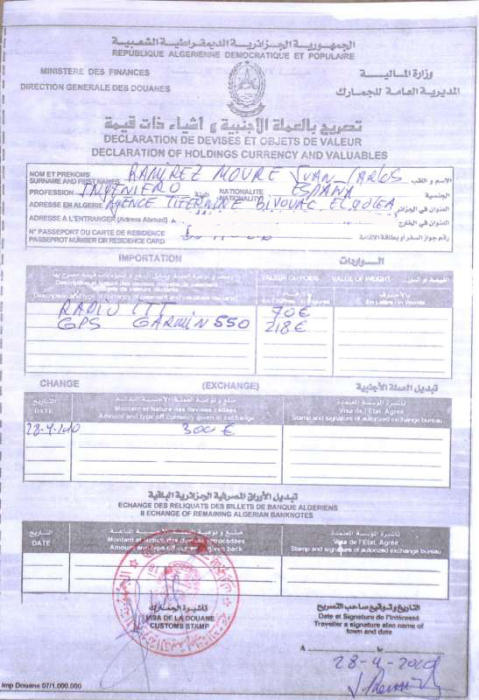 الجمهورية الجزائرية الديمقراطية الشعبية
REPUBLIQUE ALGERIENNE DEMOCRATIQUE ET POPULAIRE
MINISTERE DES FINANCES وزارة المالية
DIRECTION GENERALE DES DOUANES المديرية العامة للجمارك
تصريح بالعملة الأجنبية و أشياء ذات قيمة
DECLARATION DE DEVISES ET OBJETS DE VALEUR
DECLARATION OF HOLDINGS CURRENCY AND VALUABLES
NOM ET PRENOMS RAMIREZ MOURE JUAN CARLOS الاسم و اللقب
SURNAME AND FIRST NAMES
PROFESSION INGENIERO NATIONALITE ESPAÑA الجنسية
NATIONALITY
ADRESSE EN ALGERIE AGENCE BIVOUAC EL GOLEA العنوان في الجزائر
ADRESSE A L'ETRANGER (Adress Abroad) العنوان في الخارج
N° PASSEPORT OU CARTE DE RESIDENCE رقم جواز السفر او بطاقة الاقامة
PASSEPROT NUMBER OR RESIDENCE CARD
IMPORTATION الــواردات
VALEUR OU POIDS VALUE OF WEIGHT
RADIO ITT 70€
GPS GARMIN 550 218€
CHANGE (EXCHANGE) تبديل العملة الأجنبية
التاريخ
DATE Montant et Nature des devises cédées Visa de l'Etat Agrée
Amount and type off currency given in exchange Stamp and signature of autorized exchange bureau
28-4-2010 300€
تبديل الأوراق المصرفية الجزائرية الباقية
ECHANGE DES RELIQUATS DES BILLETS DE BANQUE ALGERIENS
B ECHANGE OF REMAINING ALGERIAN BANKNOTES
التاريخ
DATE Visa de l'Etat Agrée
Stamp and signature of autorized exchange bureau
تأشيرة الجمارك التاريخ وتوقيع صاحب التصريح
VISA DE LA DOUANE Date et Signature de l'Intéressé
CUSTOMS STAMP Traveller s signature also name of
town and date
A le
28-4-2010
Imp Douane 07/1.000.000